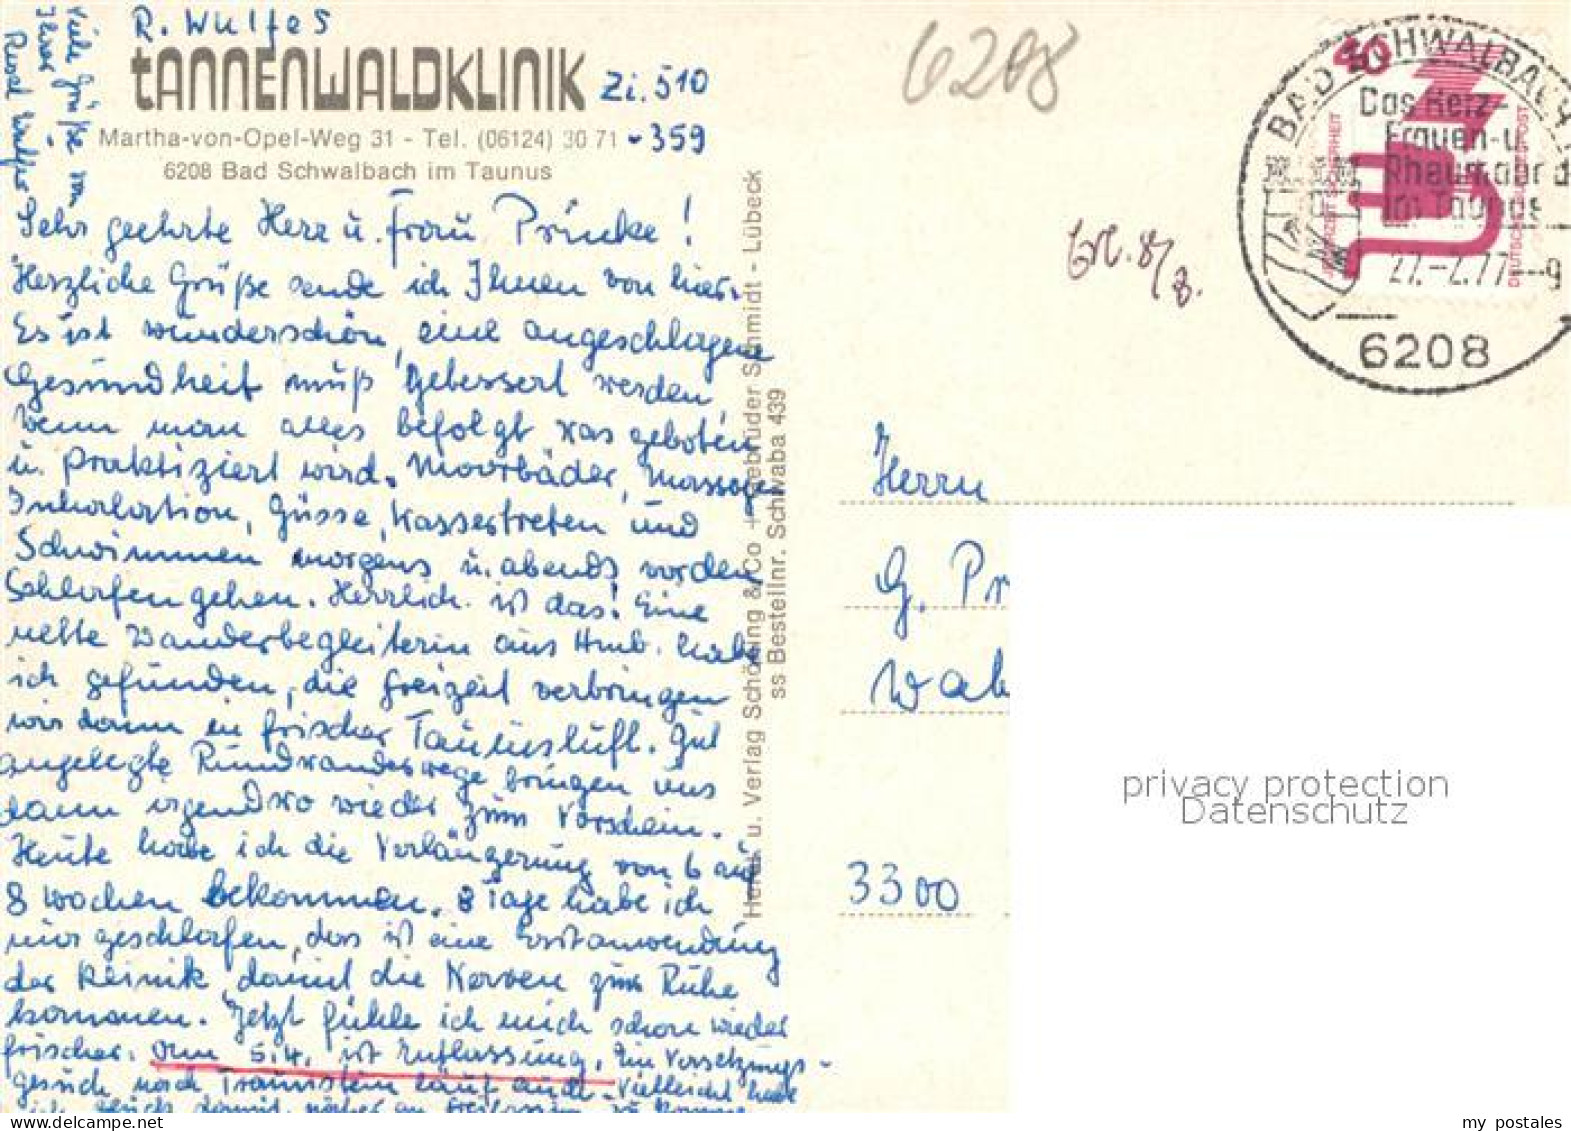 R. Wulfes
tANNENWALDKLINIK Zi. 510
Martha-von-Opel-Weg 31 - Tel. (06124) 30 71 - 359
6208 Bad Schwalbach im Taunus
Sehr geehrte Herr u. Frau Princke!
Herzliche Grüße sende ich Ihnen von hier.
Es ist wunderschön, eine angeschlagene
Gesundheit muß gebessert werden,
wenn man alles befolgt was geboten
u. praktiziert wird. Moorbäder, Massagen
Inhalation, Güsse, Wassertreten und
Schwimmen morgens u. abends vor dem
Schlafen gehen. Herrlich ist das! Eine
nette Wanderbegleiterin aus Hmb. habe
ich gefunden, die Freizeit verbringen
wir dann in frischer Taunusluft. Gut
angelegte Rundwanderwege bringen uns
dann irgendwo wieder zum Vorschein.
Heute habe ich die Verlängerung von 6 auf
8 Wochen bekommen. 8 Tage habe ich
nur geschlafen, das ist eine Erstanwendung
der Klinik, damit die Nerven zur Ruhe
kommen. Jetzt fühle ich mich schon wieder
frischer. Am 5.4. ist Entlassung. Ein Versetzungs-
gesuch nach Traunstein läuf auch. Vielleicht habe
ich Glück damit, näher an Freilassing zu kommen
Viele Grüße von
Ihrer
Rosel Wulfes
Herst. u. Verlag Schöning & Co + Gebrüder Schmidt - Lübeck
ss Bestellnr. Schwaba 439
6208
BAD SCHWALBACH 1
Das Herz-
Frauen-u.
Rheumabad
im Taunus
27.-2.77--9
6208
40
JEDERZEIT SICHERHEIT
DEUTSCHE BUNDESPOST
8/8.
Herrn
G. Pr
Wab
3300
privacy protection
Datenschutz
my postales